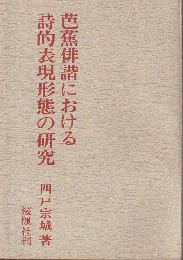 芭蕉俳諧における
詩的表現形態の研究
四戸宗城 著
桜楓社刊